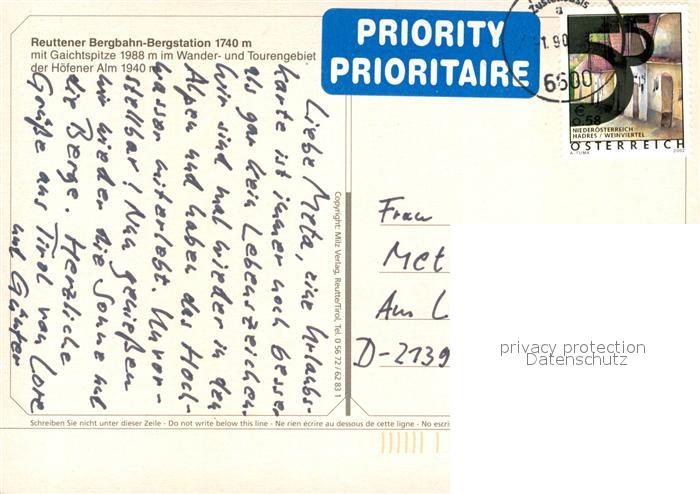 Reuttener Bergbahn-Bergstation 1740 m
mit Gaichtspitze 1988 m im Wander- und Tourengebiet
der Höfener Alm 1940 m
PRIORITY
PRIORITAIRE
6600
€ 0,58
NIEDERÖSTERREICH
HADRES / WEINVIERTEL
ÖSTERREICH
A. TUMA
2002
Liebe Meta, eine Urlaubs-
karte ist immer noch besser
als gar kein Lebenszeichen.
Wir sind mal wieder in den
Alpen und haben das Hoch-
wasser miterlebt. Unvor-
stellbar! Nun genießen
wir wieder die Sonne und
die Berge. Herzliche
Grüße aus Tirol von Lore
und Günter
Copyright: Milz Verlag, Reutte/Tirol, Tel. 0 56 72 / 62 83 1
Frau
Met
Am L
D-2139
privacy protection
Datenschutz
Schreiben Sie nicht unter dieser Zeile - Do not write below this line - Ne rien écrire au dessous de cette ligne - No escri